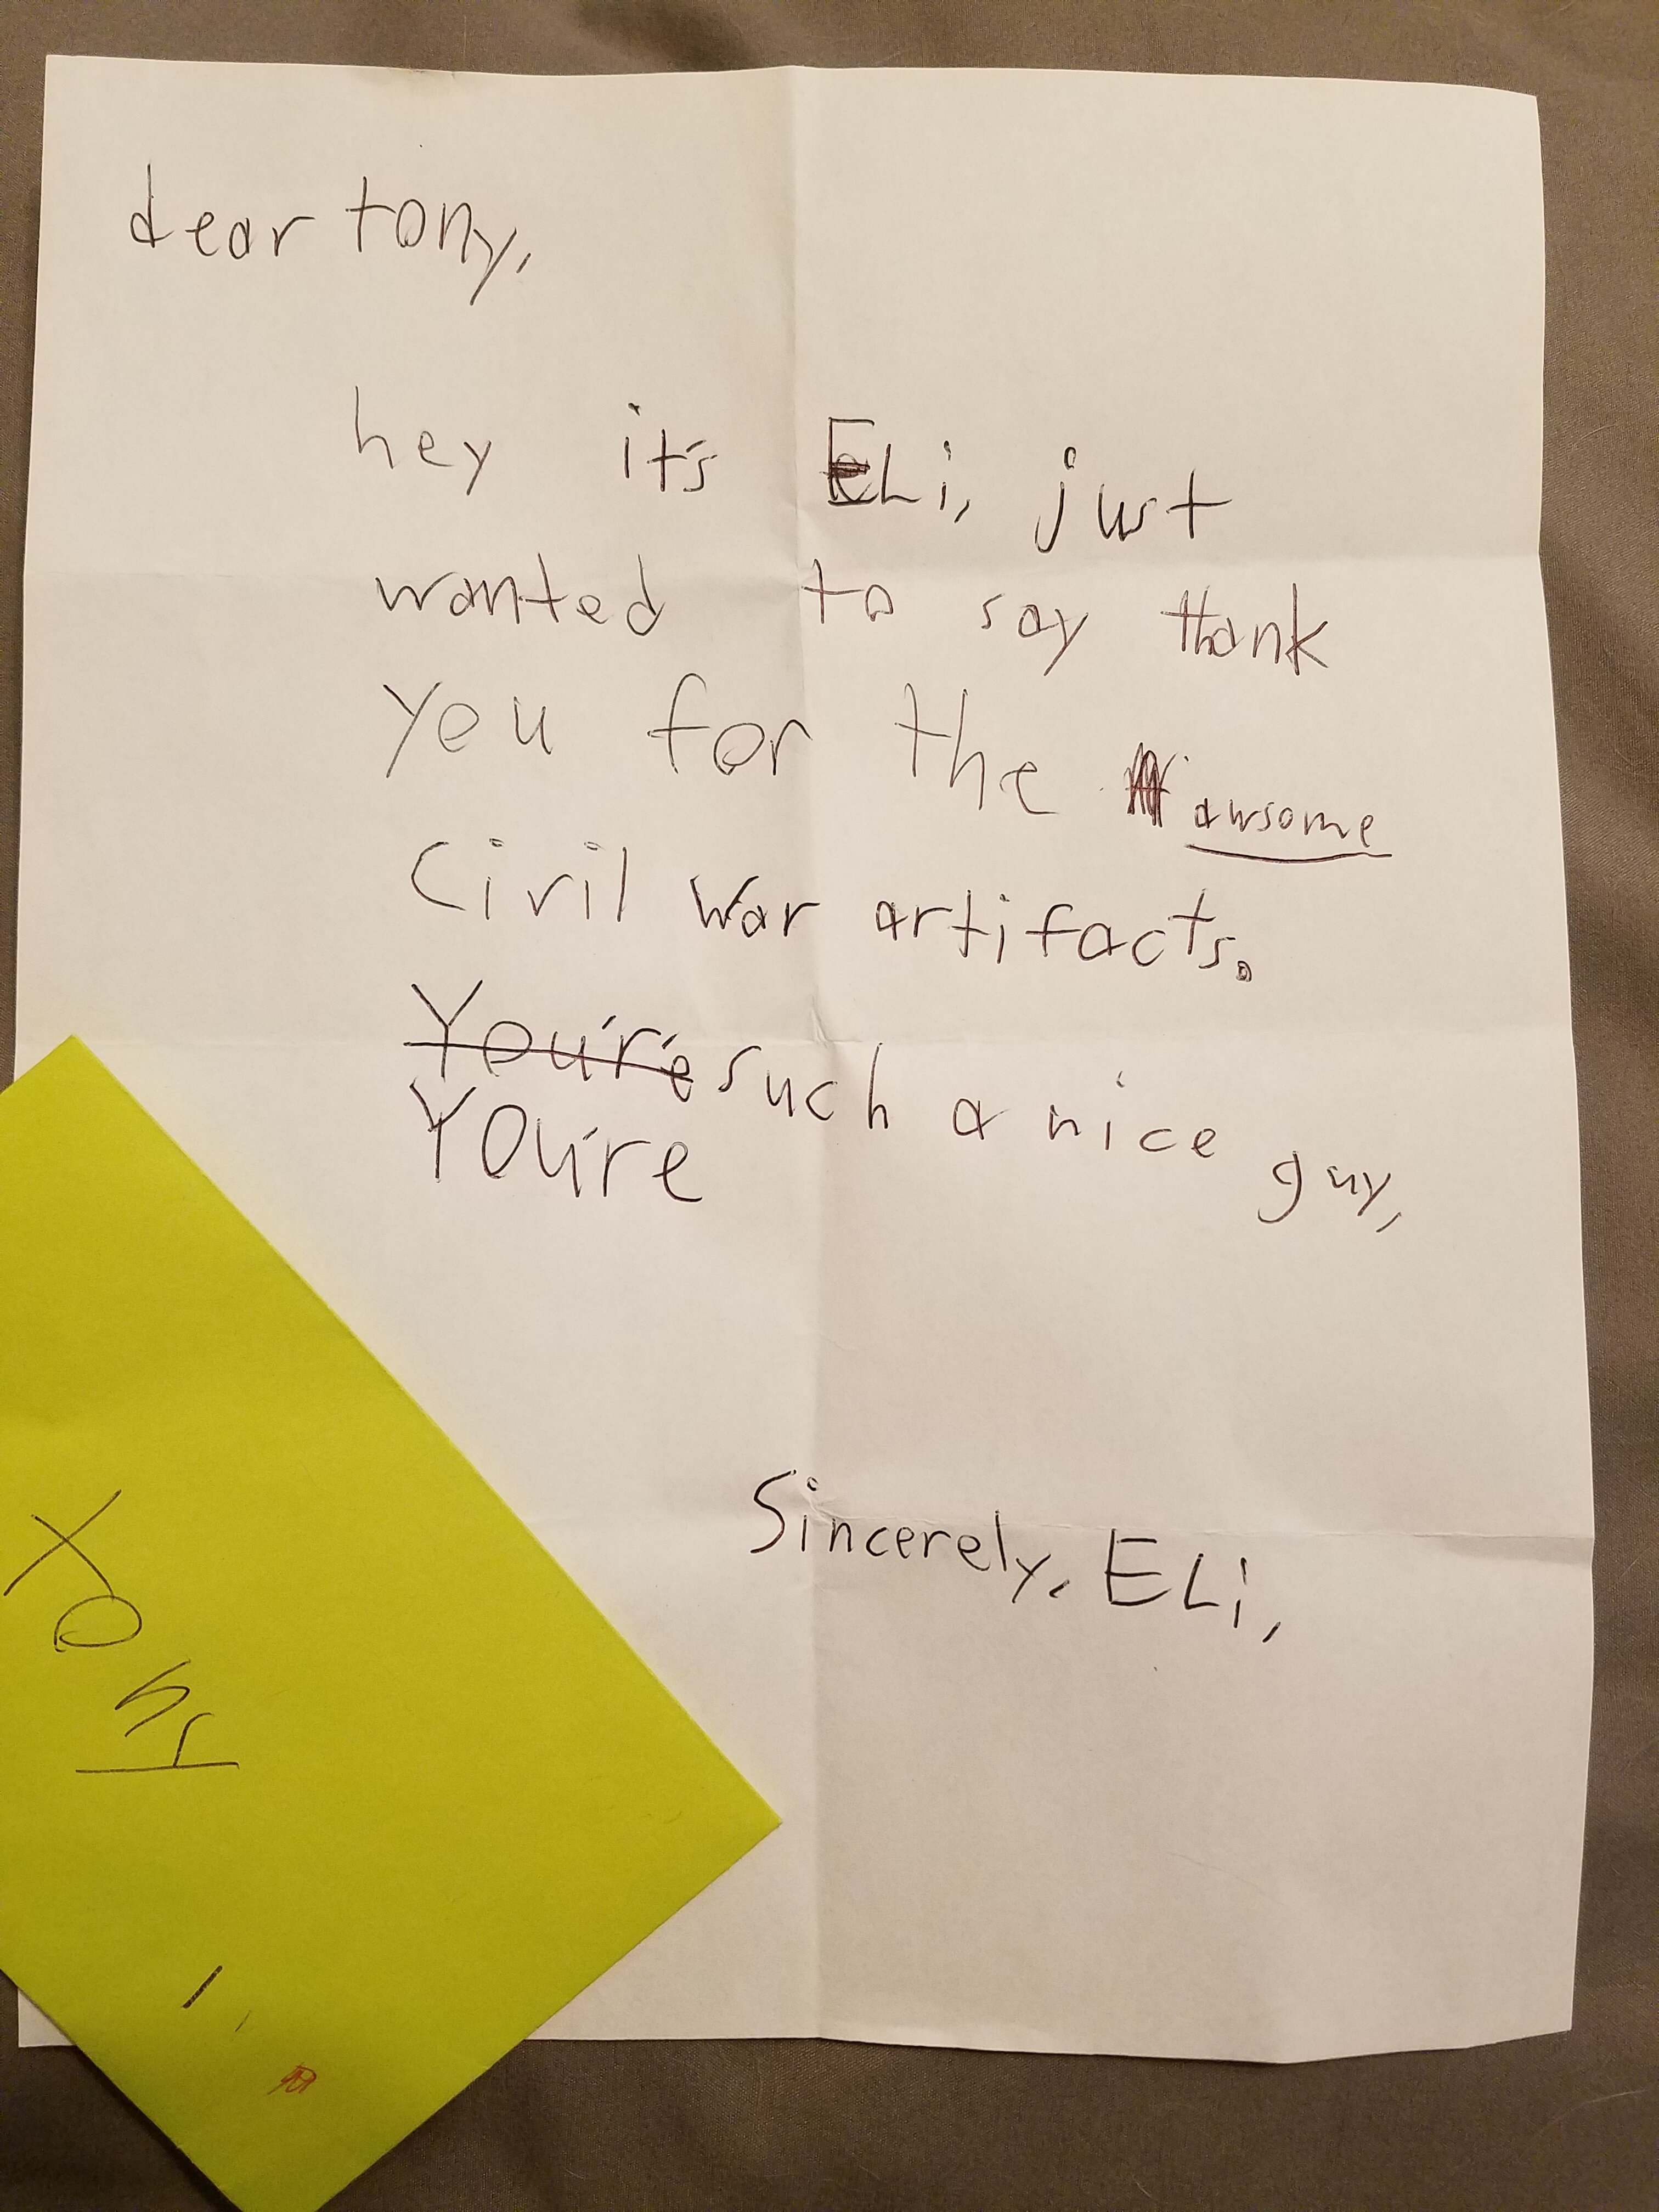 dear tony,
hey it's ELi, just
wanted to say thank
you for the awsome
Civil War artifacts.
You're such a nice guy,
You're
Sincerely, ELi,